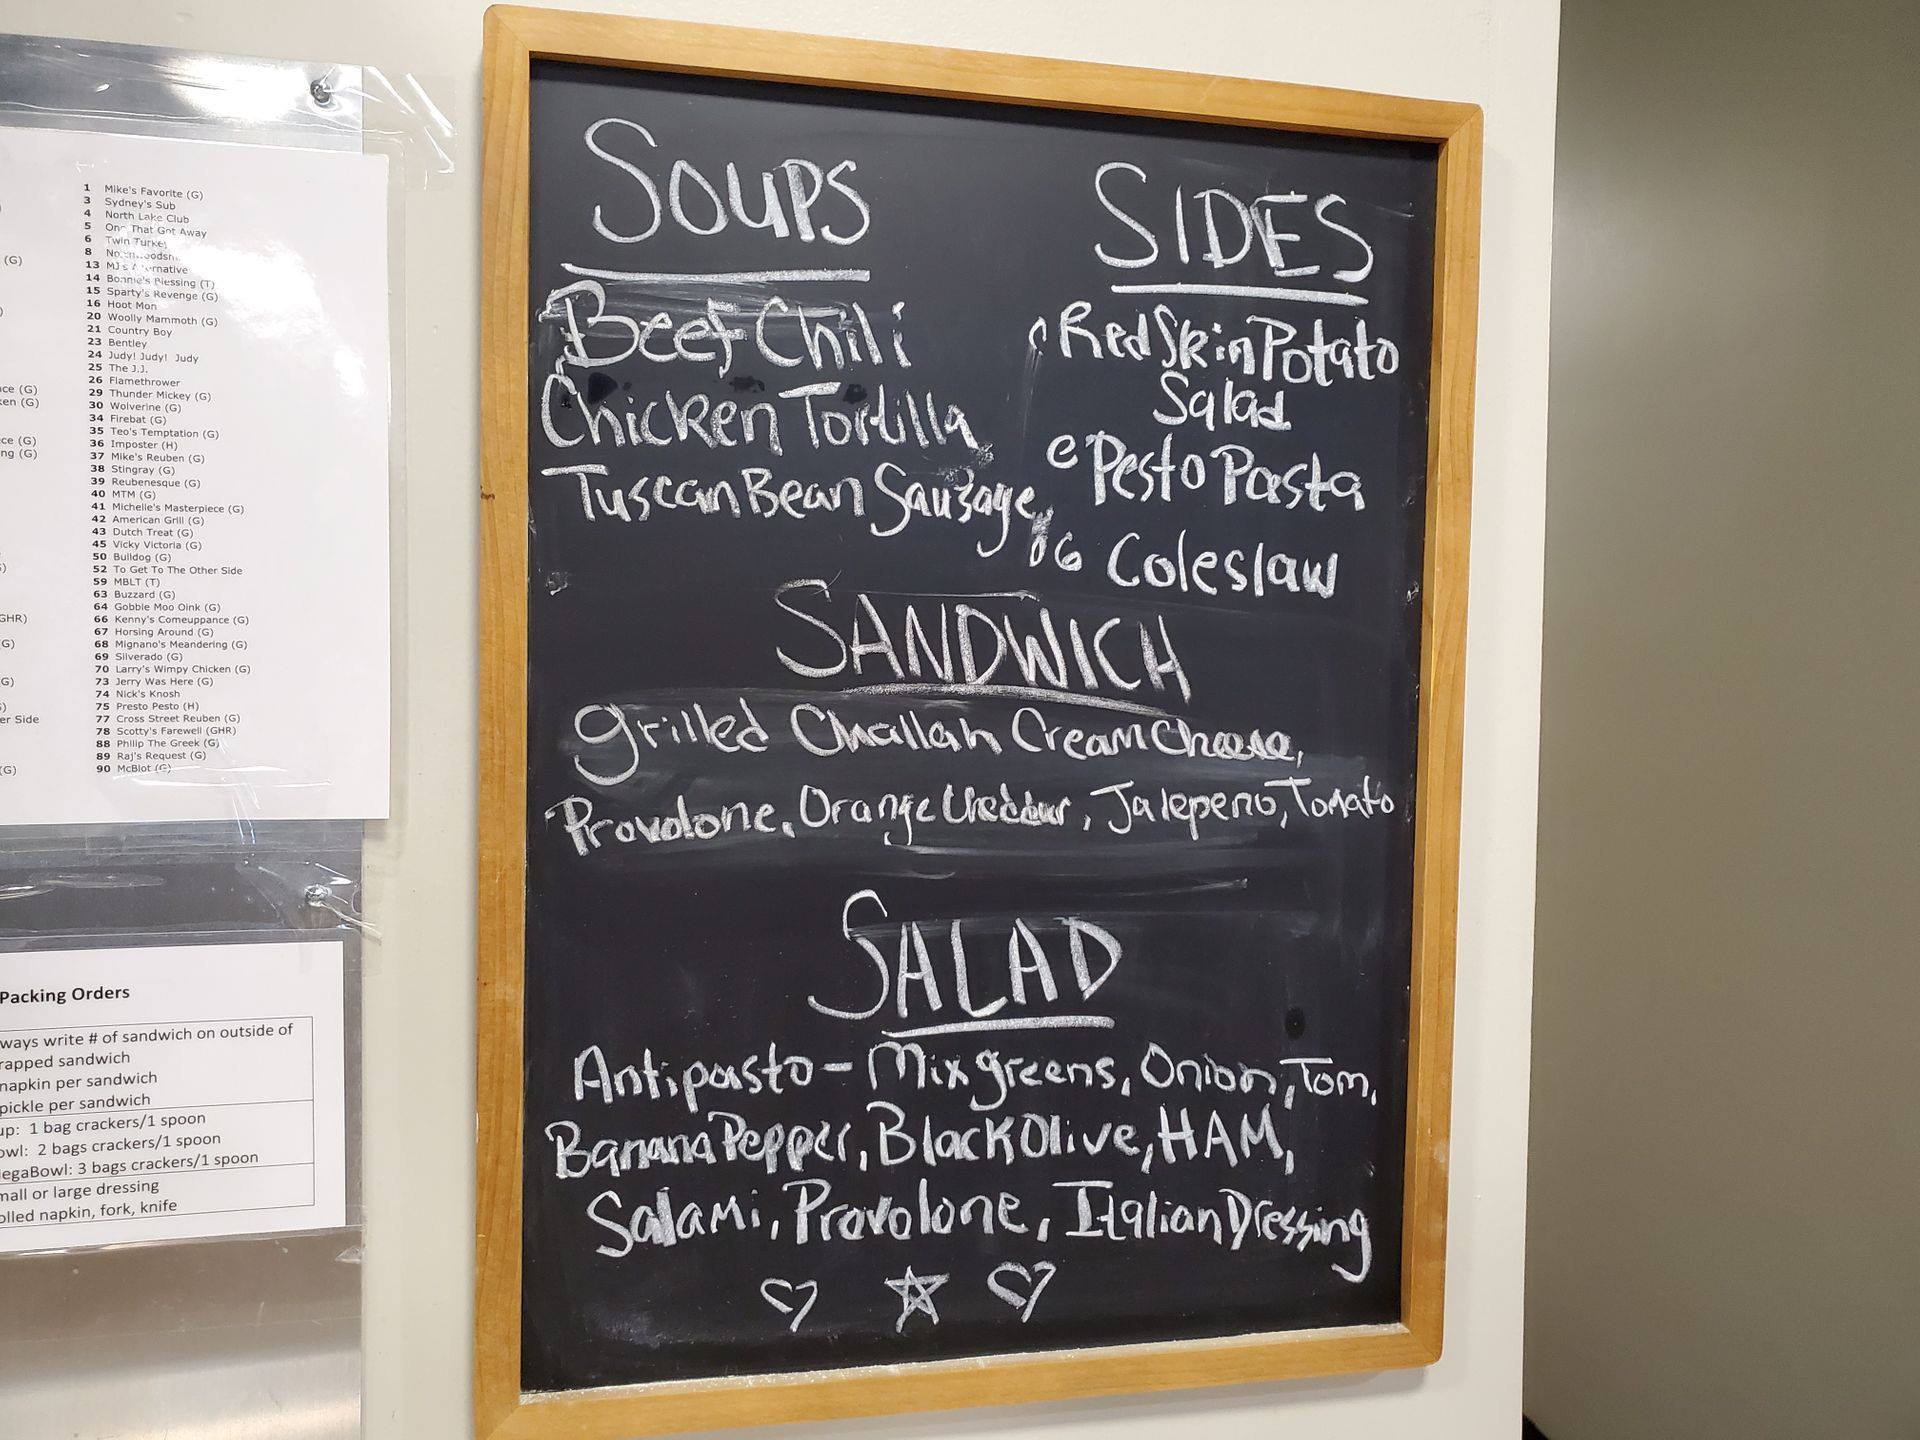 (G)
ce (G)
en (G)
ce (G)
ng (G)
GHR)
G)
G)
er Side
(G)
1 Mike's Favorite (G)
3 Sydney's Sub
4 North Lake Club
5 One That Got Away
6 Twin Turkey
8
13 MJ's Alternative
14 Bonnie's Blessing (T)
15 Sparty's Revenge (G)
16 Hoot Mon
20 Woolly Mammoth (G)
21 Country Boy
23 Bentley
24 Judy! Judy! Judy
25 The J.J.
26 Flamethrower
29 Thunder Mickey (G)
30 Wolverine (G)
34 Firebat (G)
35 Teo's Temptation (G)
36 Imposter (H)
37 Mike's Reuben (G)
38 Stingray (G)
39 Reubenesque (G)
40 MTM (G)
41 Michelle's Masterpiece (G)
42 American Grill (G)
43 Dutch Treat (G)
45 Vicky Victoria (G)
50 Bulldog (G)
52 To Get To The Other Side
59 MBLT (T)
63 Buzzard (G)
64 Gobble Moo Oink (G)
66 Kenny's Comeuppance (G)
67 Horsing Around (G)
68 Mignano's Meandering (G)
69 Silverado (G)
70 Larry's Wimpy Chicken (G)
73 Jerry Was Here (G)
74 Nick's Knosh
75 Presto Pesto (H)
77 Cross Street Reuben (G)
78 Scotty's Farewell (GHR)
88 Philip The Greek (G)
89 Raj's Request (G)
90 McBlot (G)
Packing Orders
ways write # of sandwich on outside of
rapped sandwich
napkin per sandwich
pickle per sandwich
up: 1 bag crackers/1 spoon
owl: 2 bags crackers/1 spoon
egaBowl: 3 bags crackers/1 spoon
mall or large dressing
olled napkin, fork, knife
SOUPS
Beef Chili
Chicken Tortilla
Tuscan Bean Sausage
SIDES
Red Skin Potato
Salad
Pesto Pasta
Coleslaw
SANDWICH
Grilled Challah Cream Cheese,
Provolone, Orange Cheddar, Jalepeno, Tomato
SALAD
Antipasto - Mix greens, Onion, Tom,
Banana Pepper, Black Olive, HAM,
Salami, Provolone, Italian Dressing